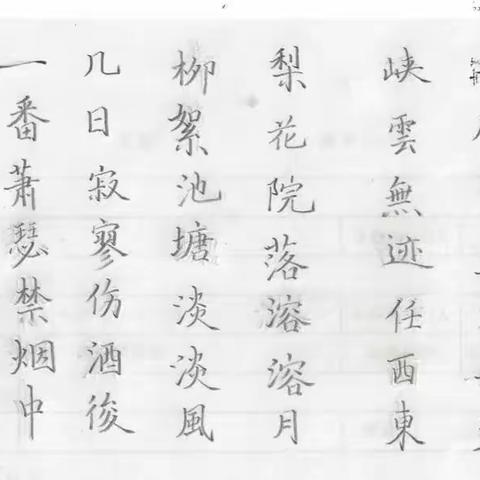 峡雲無迹任西東
梨花院落溶溶月
柳絮池塘淡淡風
几日寂寥伤酒後
一番蕭瑟禁烟中